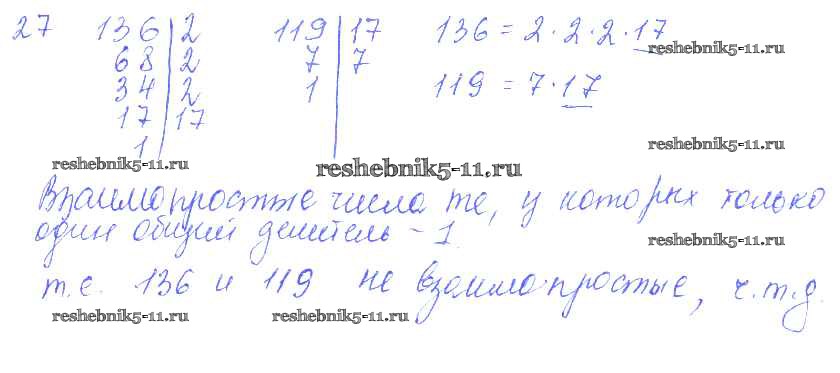 27 136 | 2 119 | 17 136 = 2 · 2 · 2 · 17
68 | 2 7 | 7 reshebnik5-11.ru
34 | 2 1 | 119 = 7 · 17
17 | 17
1 |
reshebnik5-11.ru reshebnik5-11.ru reshebnik5-11.ru
Взаимопростые числа те, у которых только
один общий делитель - 1
reshebnik5-11.ru
т.е. 136 и 119 не взаимопростые, ч.т.д.
reshebnik5-11.ru reshebnik5-11.ru reshebnik5-11.ru